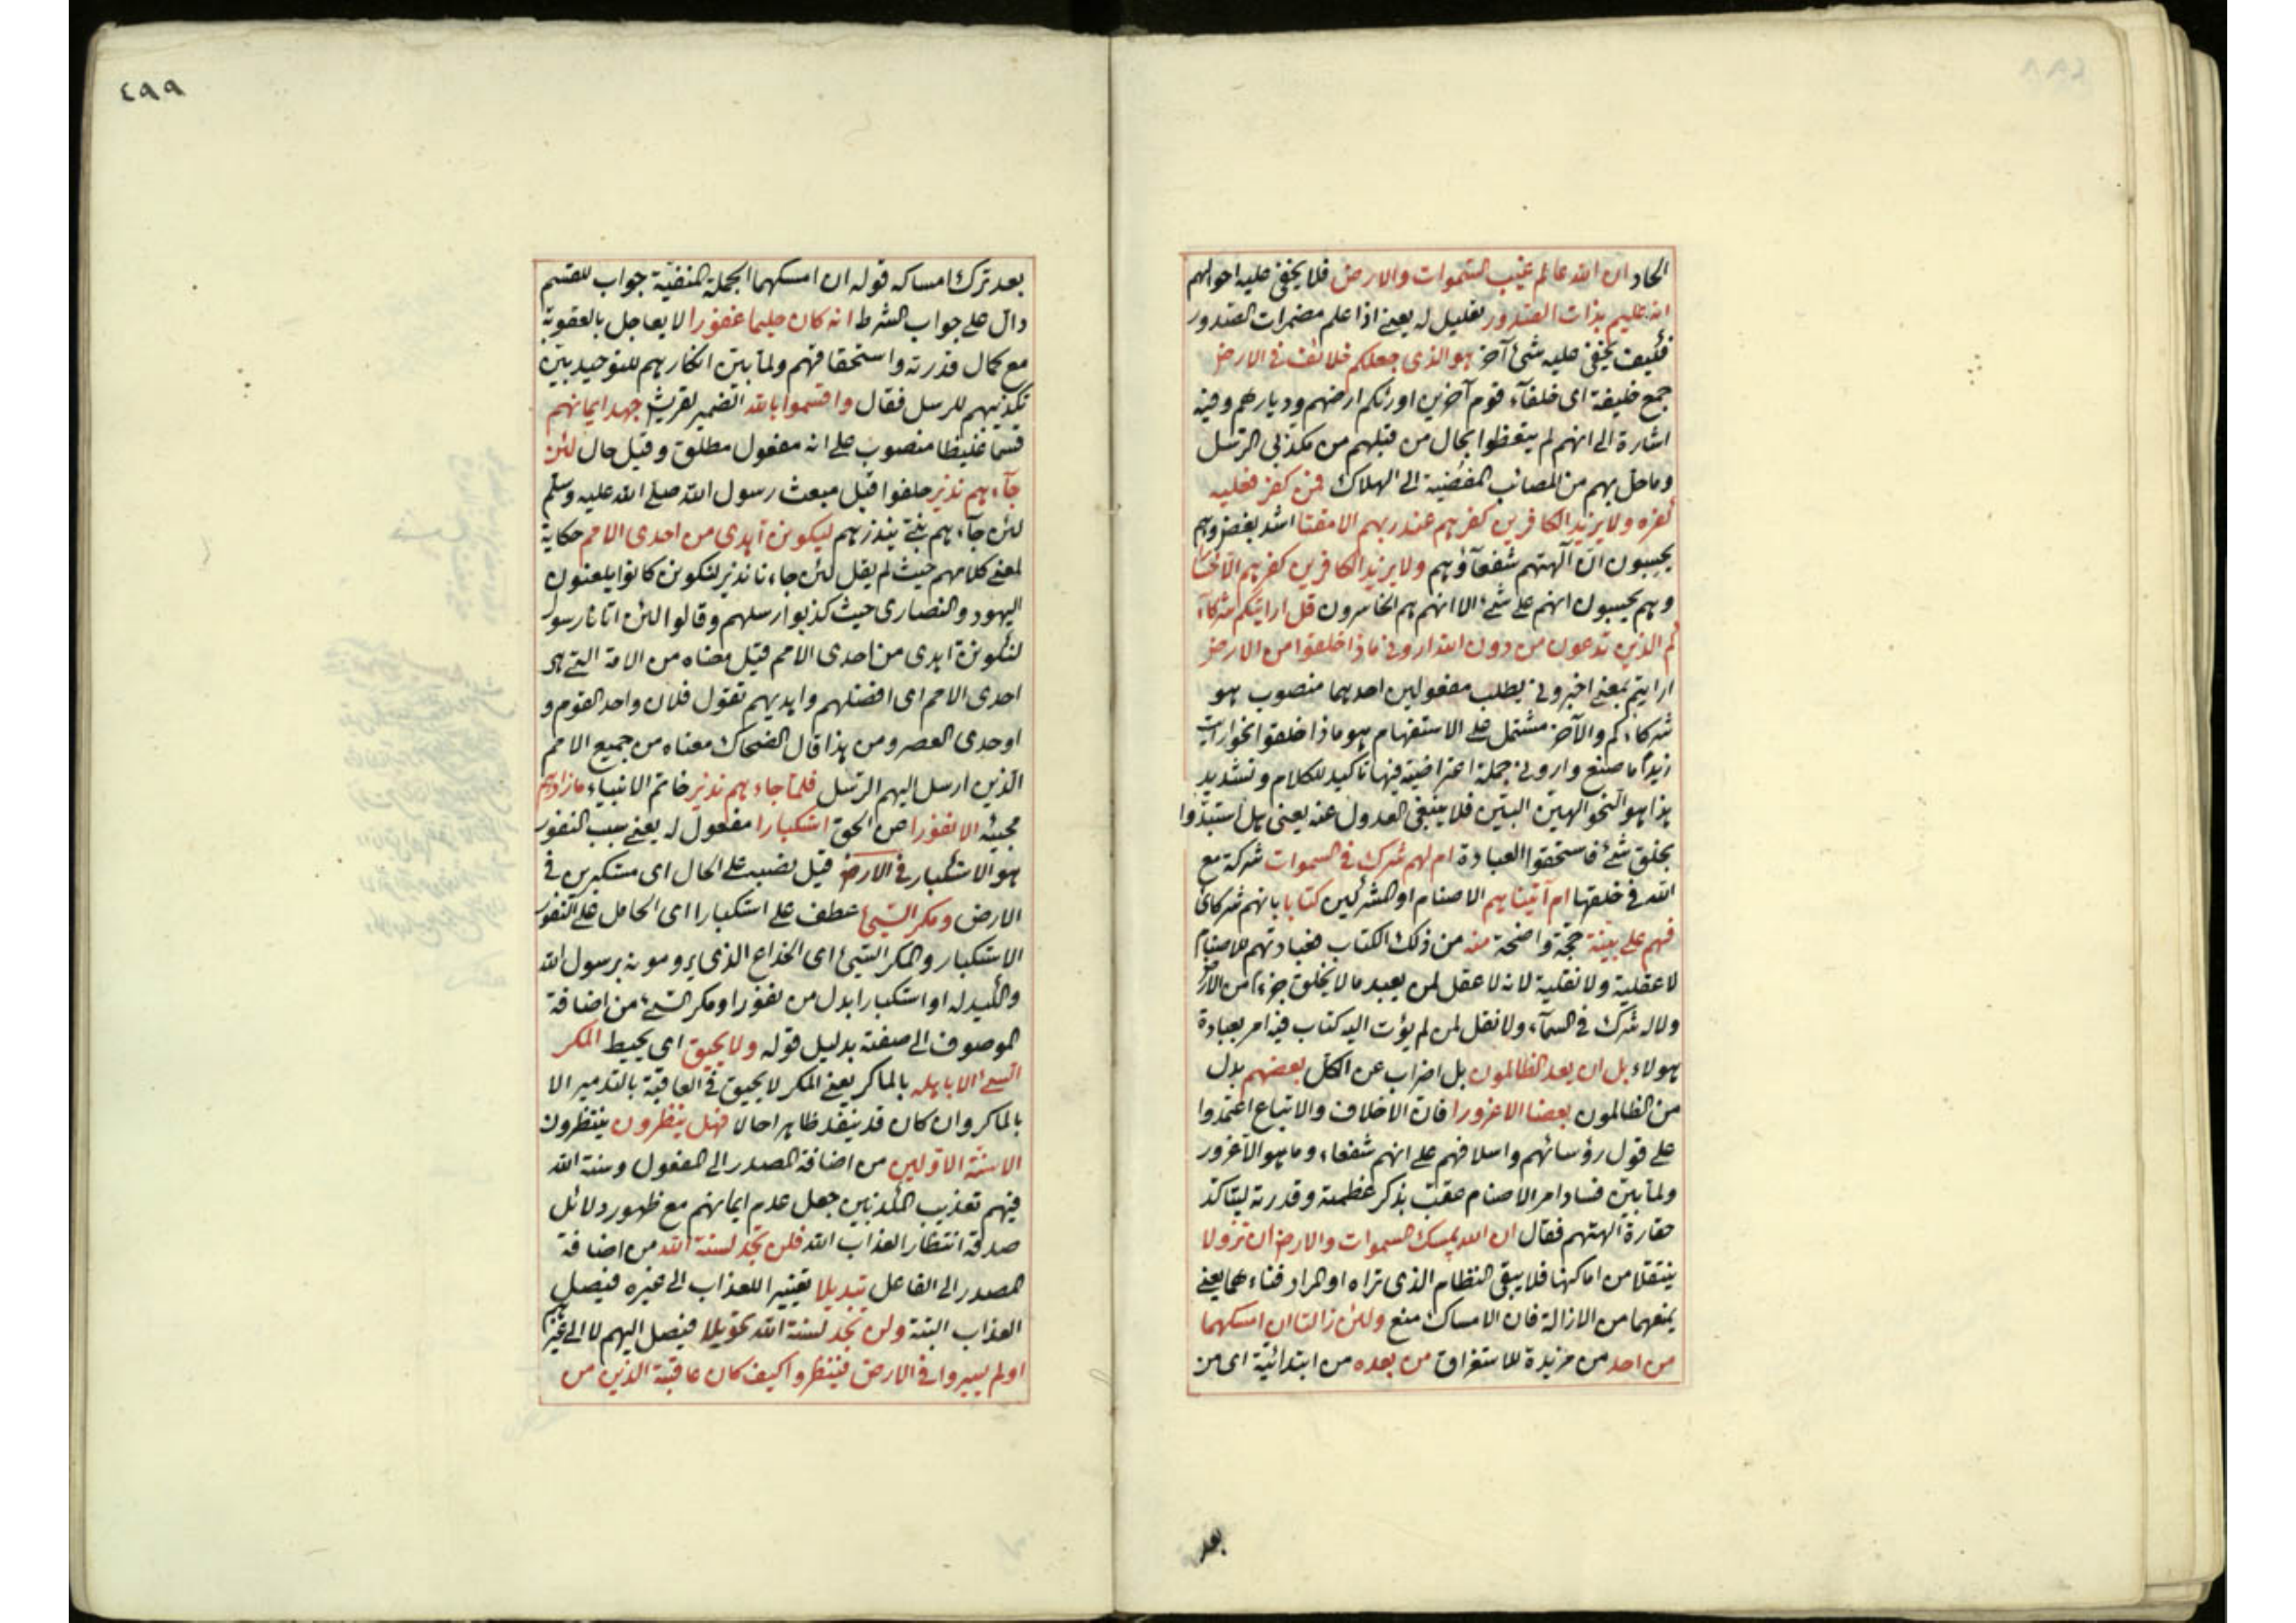 الحاد ان الله عالم غيب السموات والارض فلا يخفى عليه احوالهم
انه عليم بذات الصدور تعليل له يعني اذا علم مضمرات الصدور
فكيف يخفى عليه شئ آخر هو الذى جعلكم خلائف في الارض
جمع خليفة اى خلفآء قوم آخرين اورثكم ارضهم وديارهم وفيه
اشارة الى انهم لم يتعظوا بحال من قبلهم من مكذبي الرسل
وما حل بهم من المصائب المفضية الى الهلاك فمن كفر فعليه
كفره ولا يزيد الكافرين كفرهم عند ربهم الا مقتا اشد بغض وهم
يحسبون ان آلهتهم شفعآؤهم ولا يزيد الكافرين كفرهم الا خسا
وهم يحسبون انهم على شئ الا انهم هم الخاسرون قل ارايتم شركاء
كم الذين تدعون من دون الله ارونى ماذا خلقوا من الارض
ارايتم بمعنى اخبرونى يطلب مفعولين احدهما منصوب هو
شركاءكم والآخر مشتمل على الاستفهام هو ماذا خلقوا نحو ارايت
زيدا ما صنع وارونى جملة اعتراضية فيها تاكيد للكلام وتشديد
هذا هو النحو الهين البين فلا ينبغى العدول عنه يعنى هل استبدوا
بخلق شئ فاستحقوا العبادة ام لهم شرك في السموات شركة مع
الله في خلقها ام آتيناهم الاصنام او المشركين كتابا بانهم شركائ
فهم على بينة حجة واضحة منه من ذلك الكتاب فعبادتهم للاصنام
لا عقلية ولا نقلية لانه لا عقل لمن يعبد ما لا يخلق جزءا من الارض
ولا له شرك في السمآء ولا نقل لمن لم يؤت اليه كتاب فيه امر بعبادة
هولاء بل ان يعد الظالمون بل اضراب عن الكل بعضهم بدل
من الظالمون بعضا الا غرورا فان الاخلاف والاتباع اعتمدوا
على قول رؤسائهم واسلافهم على انهم شفعاء وما هو الا غرور
ولما بين فساد امر الاصنام عقب بذكر عظمته وقدرته ليتاكد
حقارة آلهتهم فقال ان الله يمسك السموات والارض ان تزولا
ينتقلا من اماكنها فلا يبقى النظام الذى تراه او المراد فناءهما يعنى
يمنعهما من الازالة فان الامساك منع ولئن زالتا ان امسكهما
من احد من مزيدة للاستغراق من بعده من ابتدائية اى من
بعد
٤٩٩
بعد ترك امساكه قوله ان امسكهما الجملة المنفية جواب للقسم
دال على جواب الشرط انه كان حليما غفورا لا يعاجل بالعقوبة
مع كمال قدرته واستحقاقهم ولما بين انكارهم للتوحيد بين
تكذيبهم للرسل فقال واقسموا بالله الضمير لقريش جهد ايمانهم
قسما غليظا منصوب على انه مفعول مطلق وقيل حال لئن
جآءهم نذير حلفوا قبل مبعث رسول الله صلى الله عليه وسلم
لئن جآءهم نبى ينذرهم ليكونن اهدى من احدى الامم حكاية
لمعنى كلامهم حيث لم يقل لئن جاءنا نذير لنكونن كانوا يلعنون
اليهود والنصارى حيث كذبوا رسلهم وقالوا لئن اتانا رسول
لنكونن اهدى من احدى الامم قيل معناه من الامة التى هى
احدى الامم اى افضلهم واهديهم تقول فلان واحد القوم و
اوحدى العصر ومن هذا قال الضحاك معناه من جميع الامم
الذين ارسل اليهم الرسل فلما جاءهم نذير خاتم الانبياء ما زادهم
مجيئه الا نفورا عن الحق استكبارا مفعول له يعنى سبب النفور
هو الاستكبار في الارض قيل نصب على الحال اى مستكبرين في
الارض ومكر السيئ عطف على استكبارا اى الحامل على النفور
الاستكبار والمكر السيئ اى الخداع الذى يرومونه برسول الله
والكيد له او استكبارا بدل من نفورا ومكر السئ من اضافة
الموصوف الى صفته بدليل قوله ولا يحيق اى يحيط المكر
السئ الا باهله بالماكر يعنى المكر لا يحيق في العاقبة بالتدمير الا
بالماكر وان كان قد ينفذ ظاهرا حالا فهل ينظرون ينتظرون
الا سنة الاولين من اضافة المصدر الى المفعول وسنة الله
فيهم تعذيب المكذبين جعل عدم ايمانهم مع ظهور دلائل
صدقه انتظارا لعذاب الله فلن تجد لسنة الله من اضافة
المصدر الى الفاعل تبديلا تغييرا للعذاب الى غيره فيصل
العذاب البتة ولن تجد لسنة الله تحويلا فيصل اليهم لا الى غيرهم
اولم يسيروا في الارض فينظروا كيف كان عاقبة الذين من